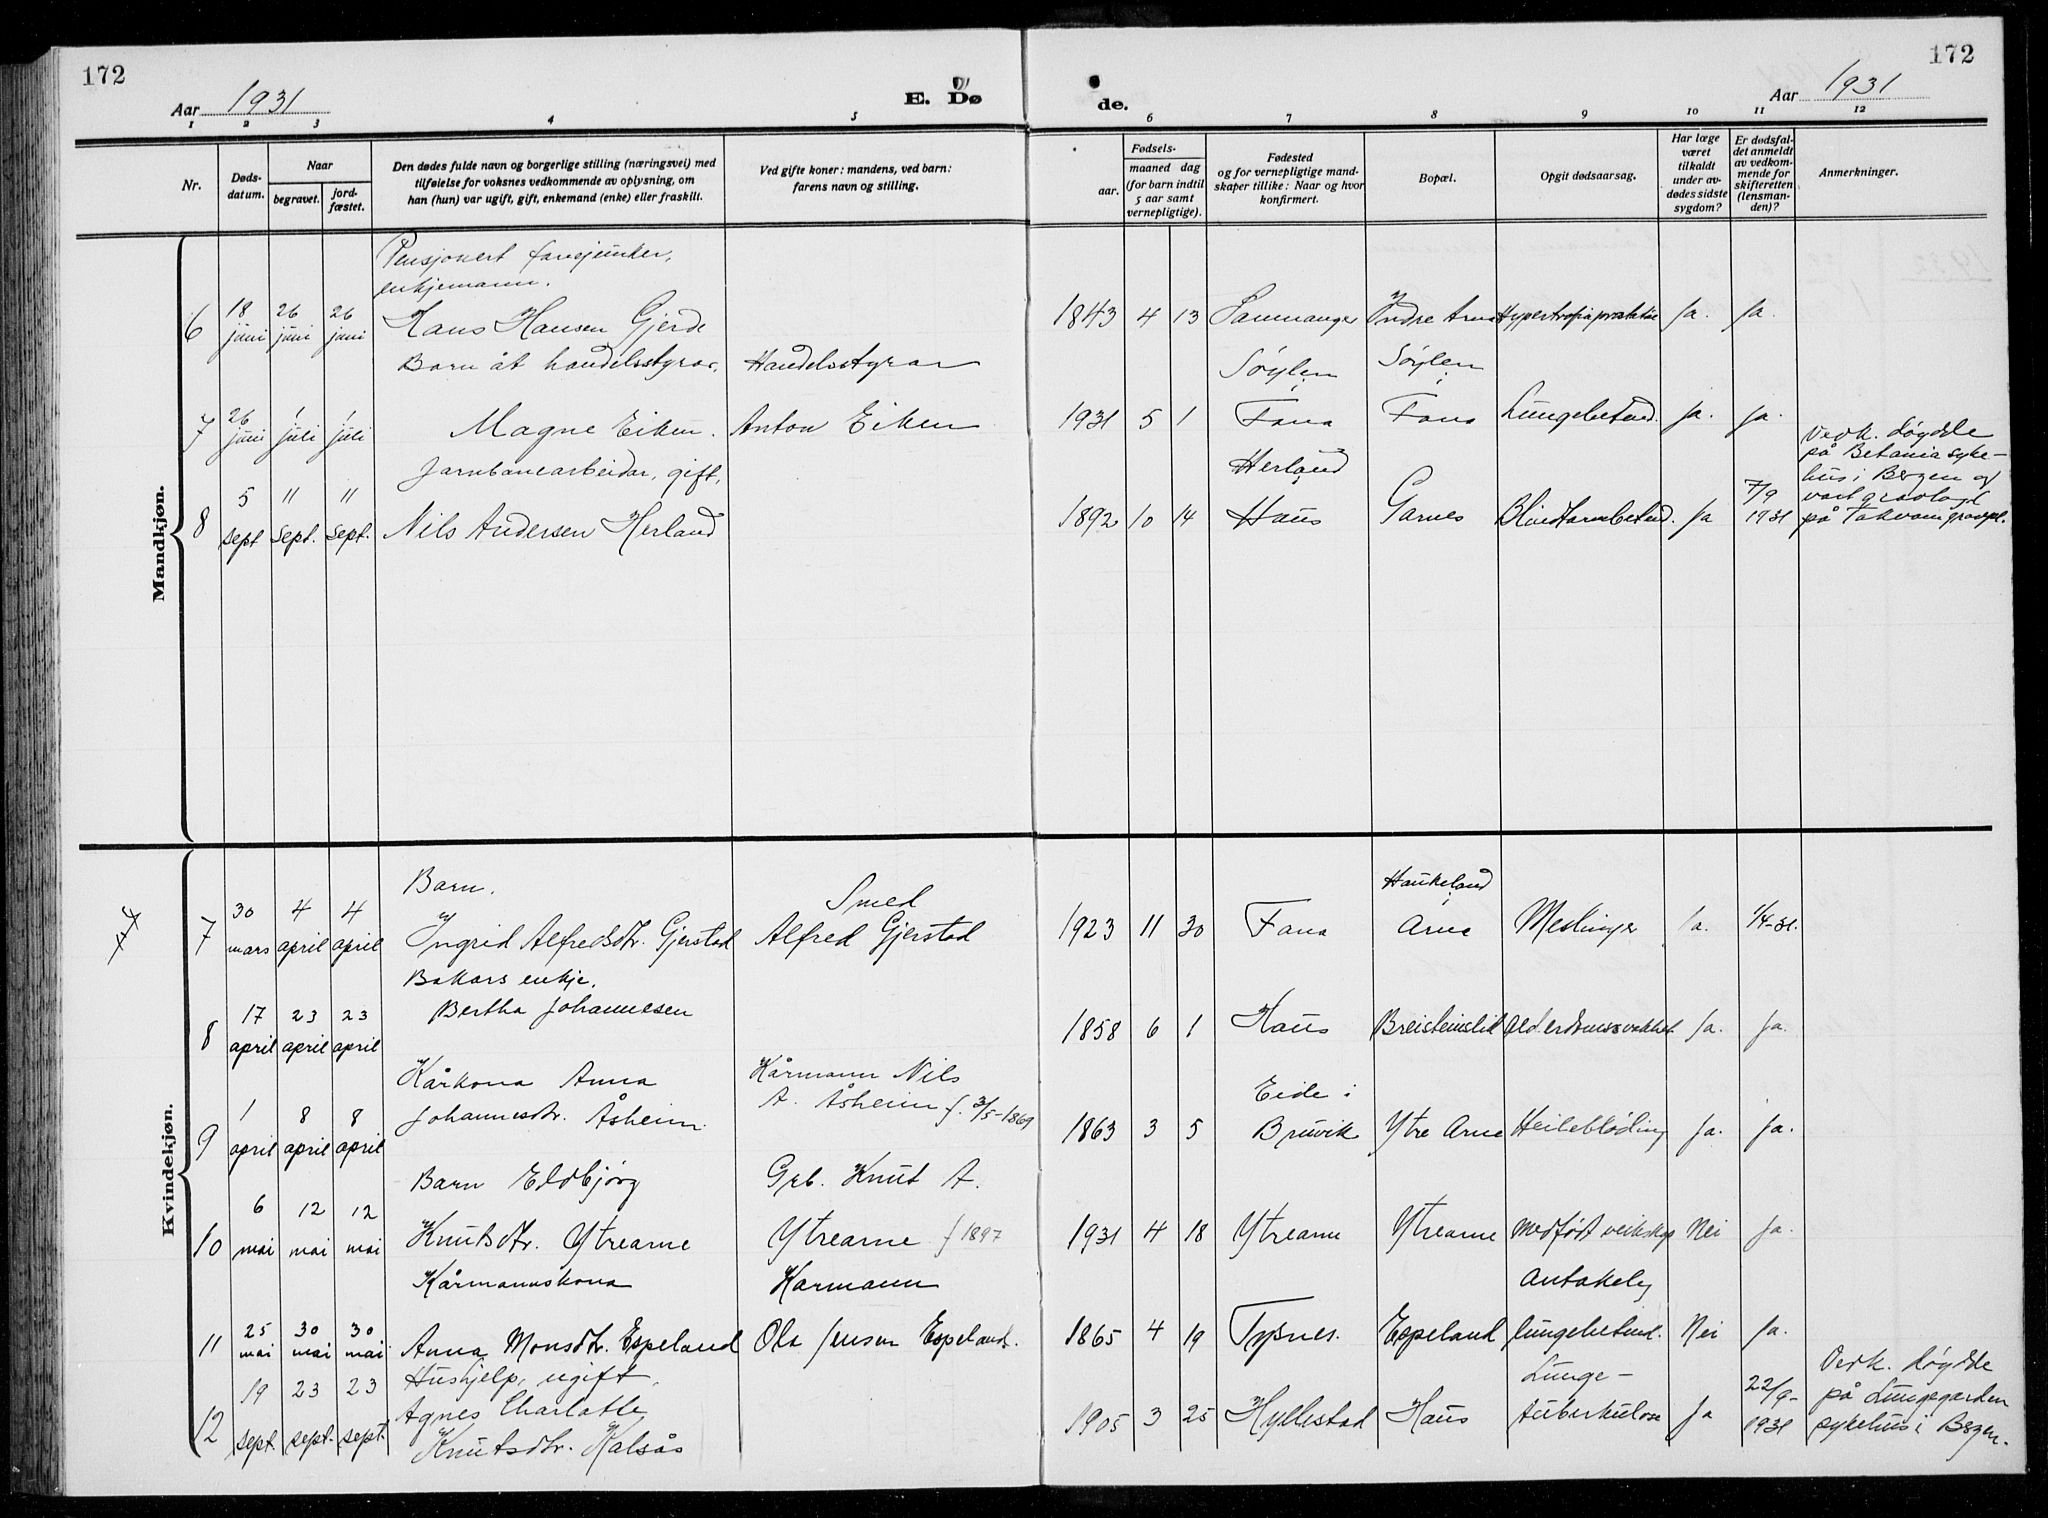 172
Aar 1931
E. Dø
de.
Aar 1931
172
1 2 3 4 5 6 7 8 9 10 11 12
Nr.
Døds-
datum.
Naar
begravet.
jord-
fæstet.
Den dødes fulde navn og borgerlige stilling (næringsvei) med
tilføielse for voksnes vedkommende av oplysning, om
han (hun) var ugift, gift, enkemand (enke) eller fraskilt.
Ved gifte koner: mandens, ved barn:
farens navn og stilling.
Fødsels-
aar.
maaned dag
(for barn indtil
5 aar samt
vernepligtige).
Fødested
og for vernepligtige mand-
skaper tillike: Naar og hvor
konfirmert.
Bopæl.
Opgit dødsaarsag.
Har læge
været
tilkaldt
under av-
dødes sidste
sygdom?
Er dødsfal-
det anmeldt
av vedkom-
mende for
skifteretten
(lensman-
den)?
Anmerkninger.
Mandkjøn.
Pensjonert fanejunker,
enkjemann.
6 18 juni 26 juni 26 juni Hans Hansen Gjerde 1843 4 13 Samnanger Indre Arna Hypertrofia prostatae Ja. Ja.
Barn åt handelsstyrar, Handelsstyrar Søylen i Søylen i
7 26 juni 1 juli 1 juli Magne Eiken. Anton Eiken 1931 5 1 Fana Fana Lungebetend. Ja. Ja.
Jarnbanearbeidar, gift, Herland i
8 5 sept 11 sept. 11 sept. Nils Andersen Herland 1892 10 14 Haus Garnes Blindtarmbetend. Ja 7/9 1931
Vedk. døydde
på Betania syke-
hus i Bergen og
vart gravlagd
på Takvam gravpl.
Kvindekjøn.
Barn. Smed Haukeland i
7 30 mars 4 april 4 april Ingrid Alfredsdtr. Gjerstad Alfred Gjerstad 1923 11 30 Fana Arna Meslinger Ja. 1/4-31.
Bakars enkje.
8 17 april 23 april 23 april Bertha Johannesen 1858 6 1 Haus Breisteinslid Alderdomssvakhet Ja. Ja.
Kårkona Anna Kårmann Nils Eide i
9 1 april 8 april 8 april Johannesdtr. Åsheim. A. Åsheim f. 3/5-1869 1863 3 5 Bruvik Ytre Arna Heilebløding Ja. Ja.
Barn Eldbjørg Grb. Knut A.
10 6 mai 12 mai 12 mai Knutsdtr. Ytrearne Ytrearne f 1897 1931 4 18 Ytrearne Ytrearne medfødt veikskap Nei Ja.
Kårmannskona Karmann Antakeleg
11 25 mai 30 mai 30 mai Anna Monsdtr. Espeland Ola Jensen Espeland. 1865 4 19 Tysnes. Espeland lungebetend. Nei Ja.
Hushjelp, ugift, Lunge-
12 19 sept. 23 sept. 23 sept. Agnes Charlotte 1905 3 25 Hyllestad Haus tuberkulose Ja 22/9-1931
Knutsdtr. Kalsås
Vedk. døydde
på Lungegarden
sykehus i Bergen.